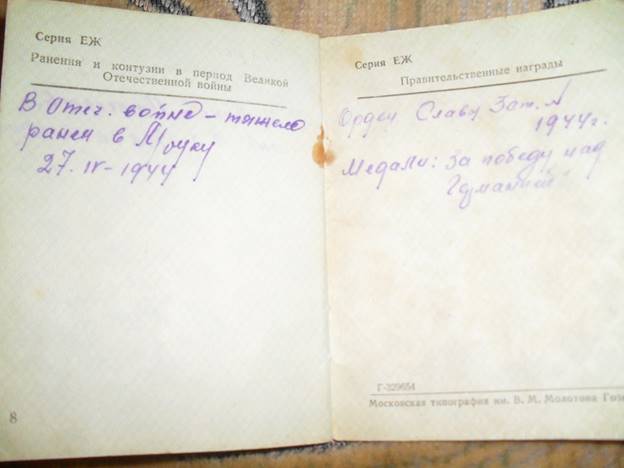 Серия ЕЖ
Ранения и контузии в период Великой
Отечественной войны
В Отеч. войне - тяжело
ранен в руку
27. IV - 1944
8
Серия ЕЖ
Правительственные награды
Орден Славы
1944 г.
Медали: за победу над
Германией
Г-329654
Московская типография им. В. М. Молотова